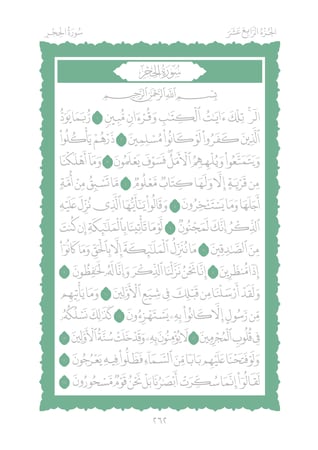 الجُزْءُ الرَّابِعَ عَشَرَ
سُورَةُ الحِجْرِ
سُورَةُ الحِجْرِ
بِسْمِ ٱللَّهِ ٱلرَّحْمَٰنِ ٱلرَّحِيمِ
الٓر تِلْكَ ءَايَٰتُ ٱلْكِتَٰبِ وَقُرْءَانٍ مُّبِينٍ رُّبَمَا يَوَدُّ
ٱلَّذِينَ كَفَرُوا۟ لَوْ كَانُوا۟ مُسْلِمِينَ ذَرْهُمْ يَأْكُلُوا۟
وَيَتَمَتَّعُوا۟ وَيُلْهِهِمُ ٱلْأَمَلُ فَسَوْفَ يَعْلَمُونَ وَمَآ أَهْلَكْنَا
مِن قَرْيَةٍ إِلَّا وَلَهَا كِتَابٌ مَّعْلُومٌ مَّا تَسْبِقُ مِنْ أُمَّةٍ
أَجَلَهَا وَمَا يَسْتَـْٔخِرُونَ وَقَالُوا۟ يَٰٓأَيُّهَا ٱلَّذِى نُزِّلَ عَلَيْهِ
ٱلذِّكْرُ إِنَّكَ لَمَجْنُونٌ لَّوْ مَا تَأْتِينَا بِٱلْمَلَٰٓئِكَةِ إِن كُنتَ
مِنَ ٱلصَّٰدِقِينَ مَا نُنَزِّلُ ٱلْمَلَٰٓئِكَةَ إِلَّا بِٱلْحَقِّ وَمَا كَانُوٓا۟
إِذًا مُّنظَرِينَ إِنَّا نَحْنُ نَزَّلْنَا ٱلذِّكْرَ وَإِنَّا لَهُۥ لَحَٰفِظُونَ
وَلَقَدْ أَرْسَلْنَا مِن قَبْلِكَ فِى شِيَعِ ٱلْأَوَّلِينَ وَمَا يَأْتِيهِم
مِّن رَّسُولٍ إِلَّا كَانُوا۟ بِهِۦ يَسْتَهْزِءُونَ كَذَٰلِكَ نَسْلُكُهُۥ
فِى قُلُوبِ ٱلْمُجْرِمِينَ لَا يُؤْمِنُونَ بِهِۦ وَقَدْ خَلَتْ سُنَّةُ ٱلْأَوَّلِينَ
وَلَوْ فَتَحْنَا عَلَيْهِم بَابًا مِّنَ ٱلسَّمَآءِ فَظَلُّوا۟ فِيهِ يَعْرُجُونَ
لَقَالُوٓا۟ إِنَّمَا سُكِّرَتْ أَبْصَٰرُنَا بَلْ نَحْنُ قَوْمٌ مَّسْحُورُونَ
٢٦٢